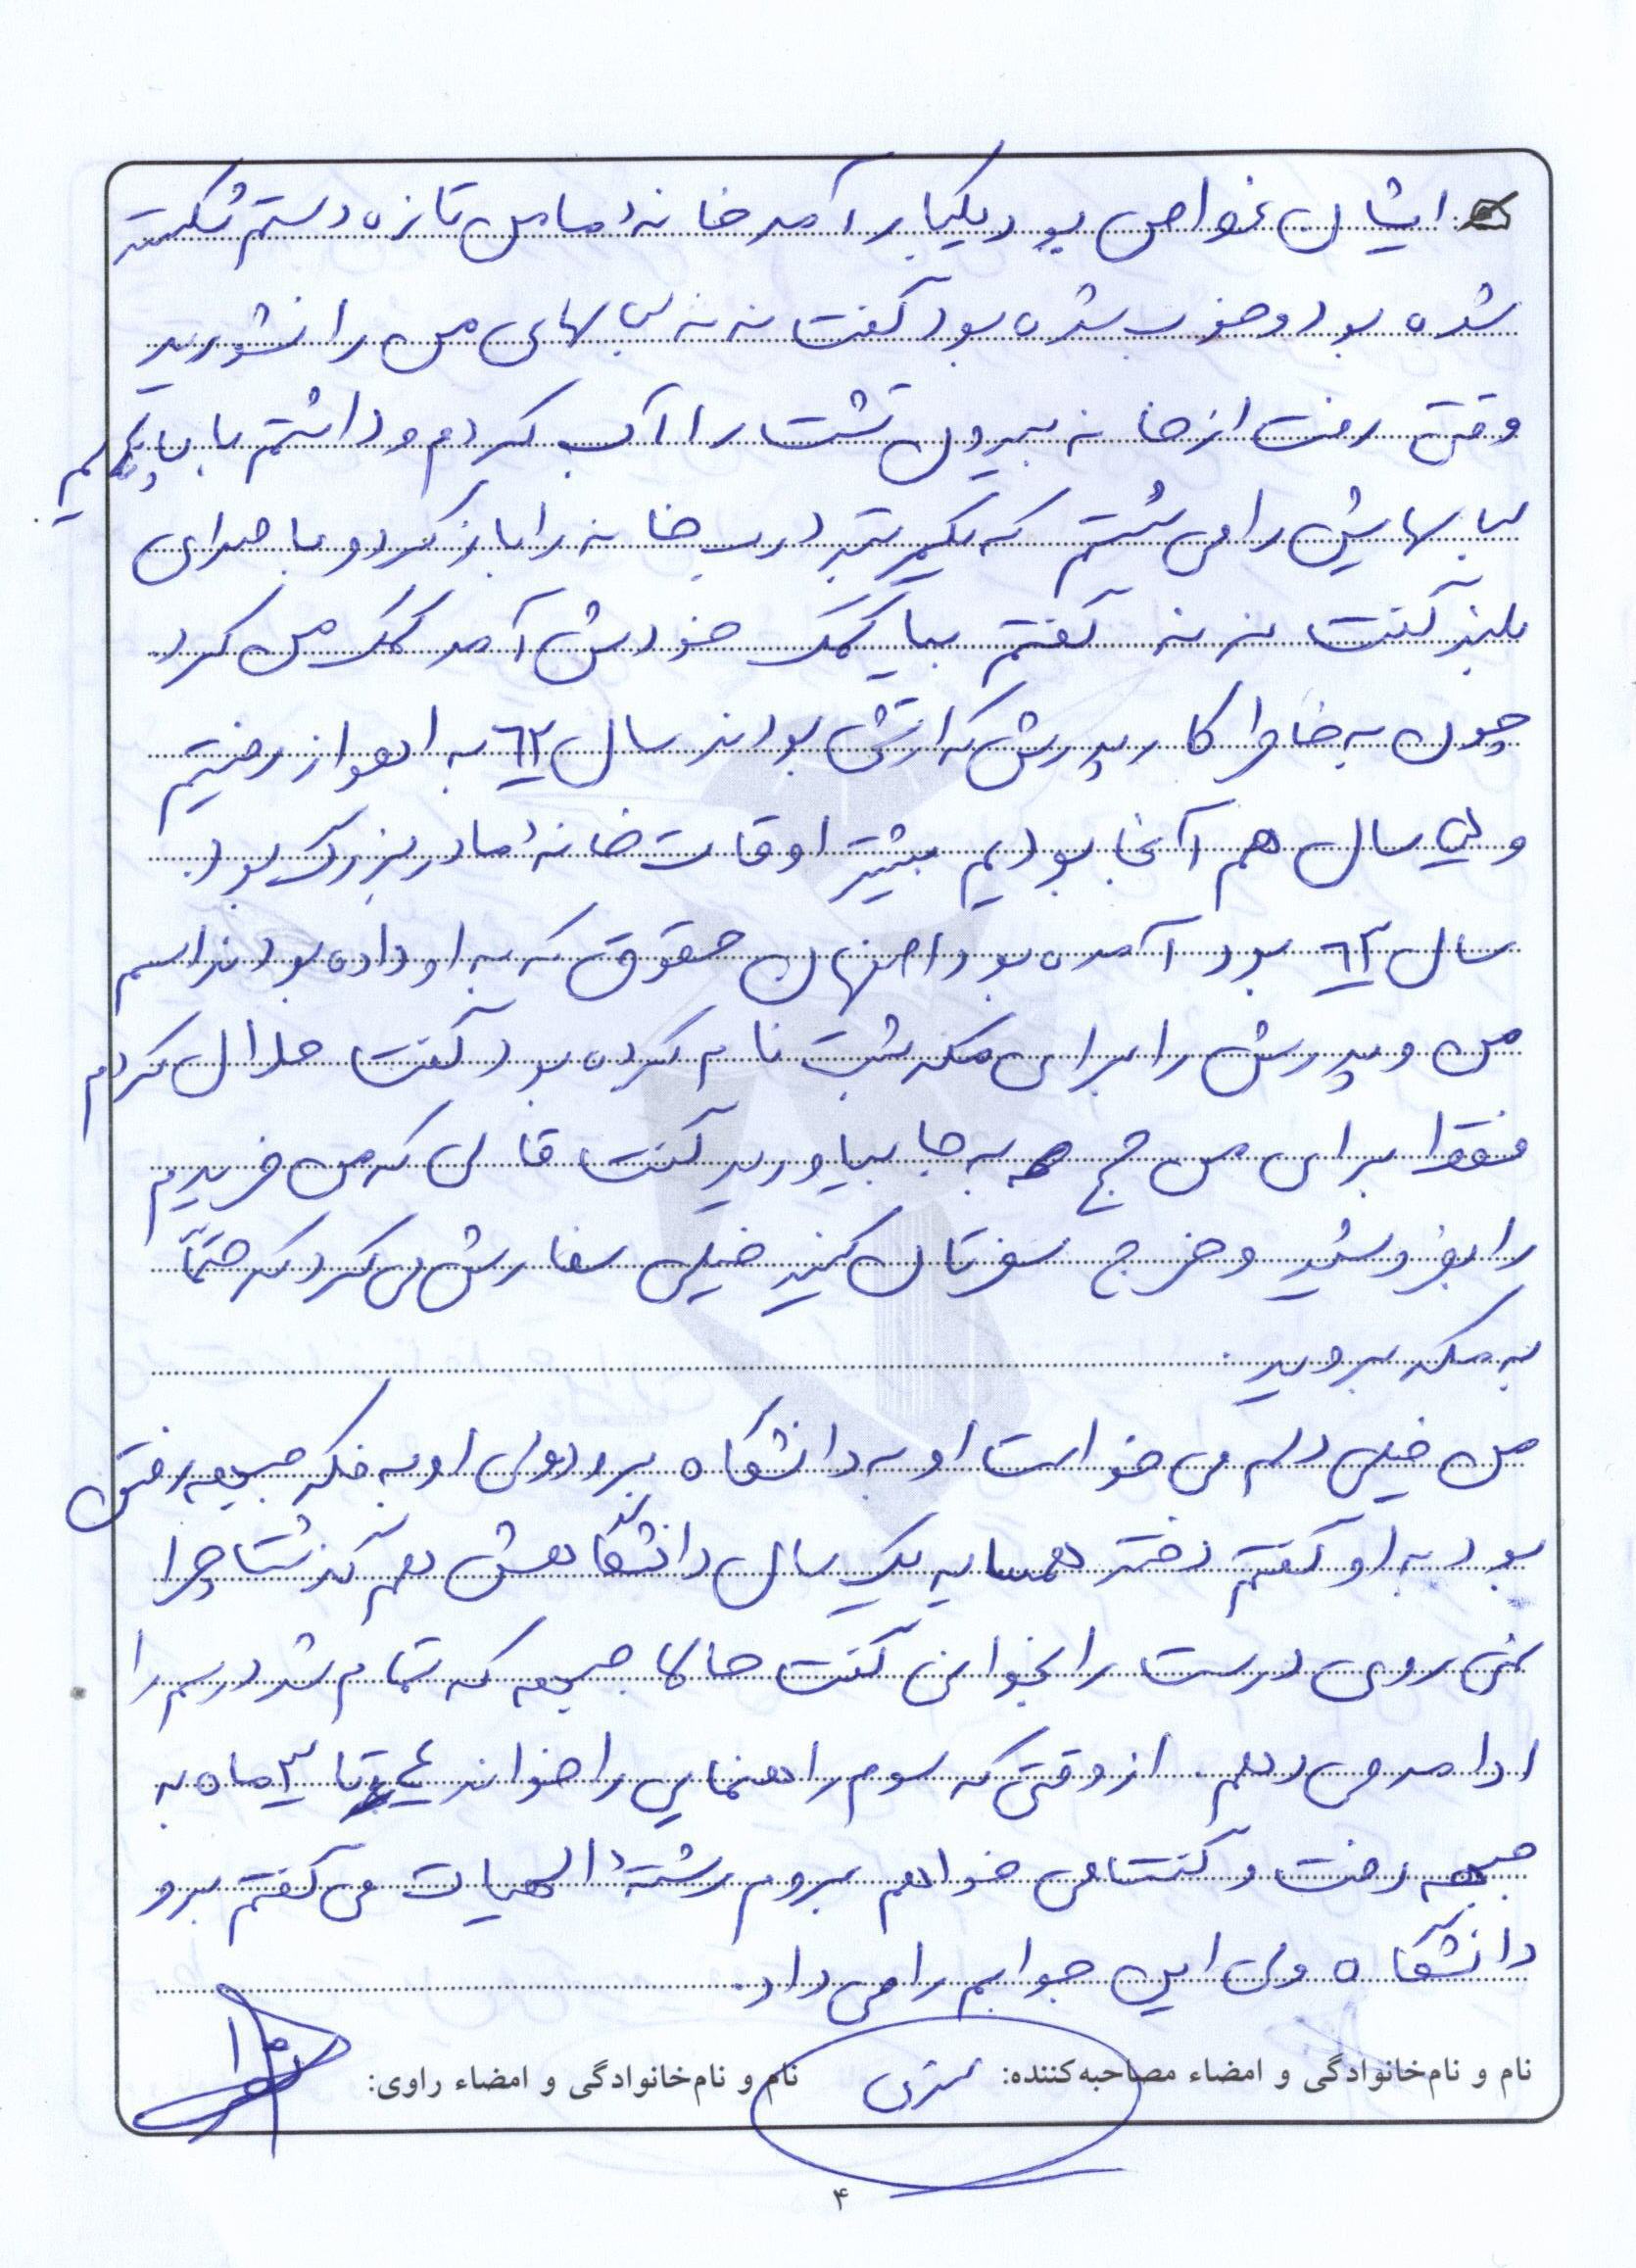 ایشان غواص بود یکبار آمد خانهٔ ما من تازه دستم شکسته
شده بود و خوب شده بود گفت ننه لباسهای من را نشورید
وقتی رفت از خانه بیرون تشت را آب کردم و داشتم با پاهایم
لباسهایش را می شستم که یکمرتبه درب خانه را باز کرد و با صدای
بلند گفت ننه گفتم بیا کمک خودش آمد کمک من کرد
چون به خاطر کار پدرش که ارتشی بودند سال ٦٢ به اهواز رفتیم
و سال هم آنجا بودیم بیشتر اوقات خانهٔ مادربزرگ بود.
سال ٦٢ بود آمده بود اصفهان حقوقی که به او داده بودند اسم
من و پدرش را برای مکه ثبت نام کرده بود گفت حلال کردم
فقط برای من حج به جا بیاورید گفت قالی که من خریدم
را بفروشید و خرج سفرتان کنید خیلی سفارش می کرد که حتماً
به مکه بروید.
من خیلی دلم می خواست او به دانشگاه برود ولی او به فکر جبهه رفتن
بود به او گفتم دختر همسایه یک سال دانشگاهش هم گذشت چرا
نمی روی درست را بخوانی گفت حالا جبهه که تمام شد درسم را
ادامه می دهم. از وقتی که سوم راهنمایی را خواند ٤ تا ٣ ماه به
جبهه رفت و گفت می خواهم بروم رشتهٔ الهیات می گفتم برو
دانشگاه ولی این جوابم را می داد.
نام و نام‌خانوادگی و امضاء مصاحبه‌کننده: نام و نام‌خانوادگی و امضاء راوی:
۴